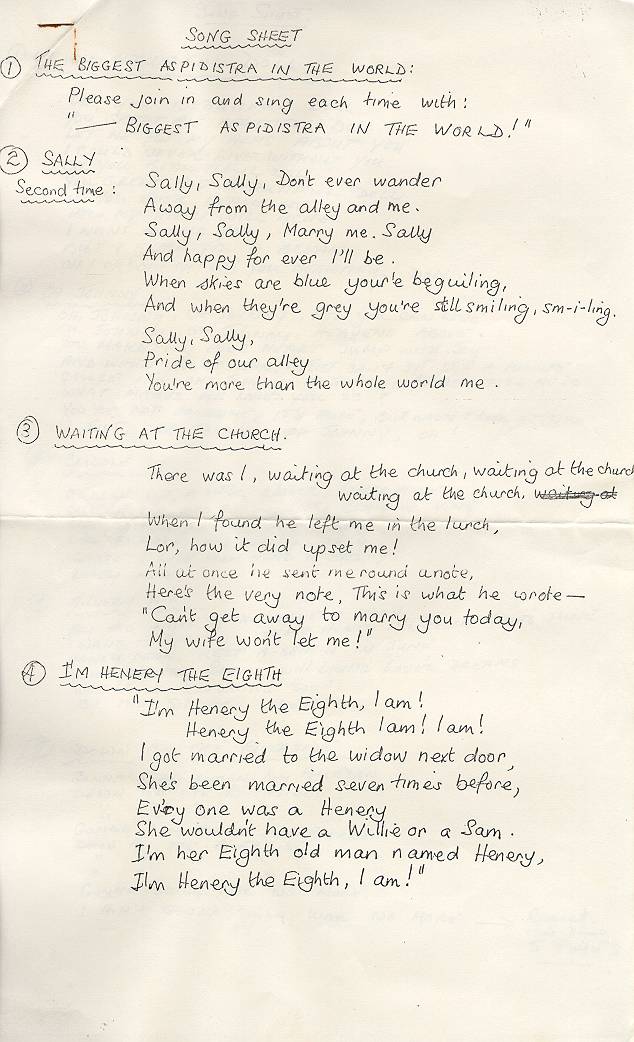 SONG SHEET
① THE BIGGEST ASPIDISTRA IN THE WORLD:
Please join in and sing each time with:
"—— BIGGEST ASPIDISTRA IN THE WORLD!"
② SALLY
Second time: Sally, Sally, Don't ever wander
Away from the alley and me.
Sally, Sally, Marry me. Sally
And happy for ever I'll be.
When skies are blue your'e beguiling,
And when they're grey you're still smiling, sm-i-ling.
Sally, Sally,
Pride of our alley
You're more than the whole world me.
③ WAITING AT THE CHURCH.
There was I, waiting at the church, waiting at the church
waiting at the church, waiting at
When I found he left me in the lurch,
Lor, how it did upset me!
All at once he sent me round a note,
Here's the very note, This is what he wrote—
"Can't get away to marry you today,
My wife won't let me!"
④ I'M HENERY THE EIGHTH
"I'm Henery the Eighth, I am!
Henery the Eighth I am! I am!
I got married to the widow next door,
She's been married seven times before,
Ev'ry one was a Henery
She wouldn't have a Willie or a Sam.
I'm her Eighth old man named Henery,
I'm Henery the Eighth, I am!"